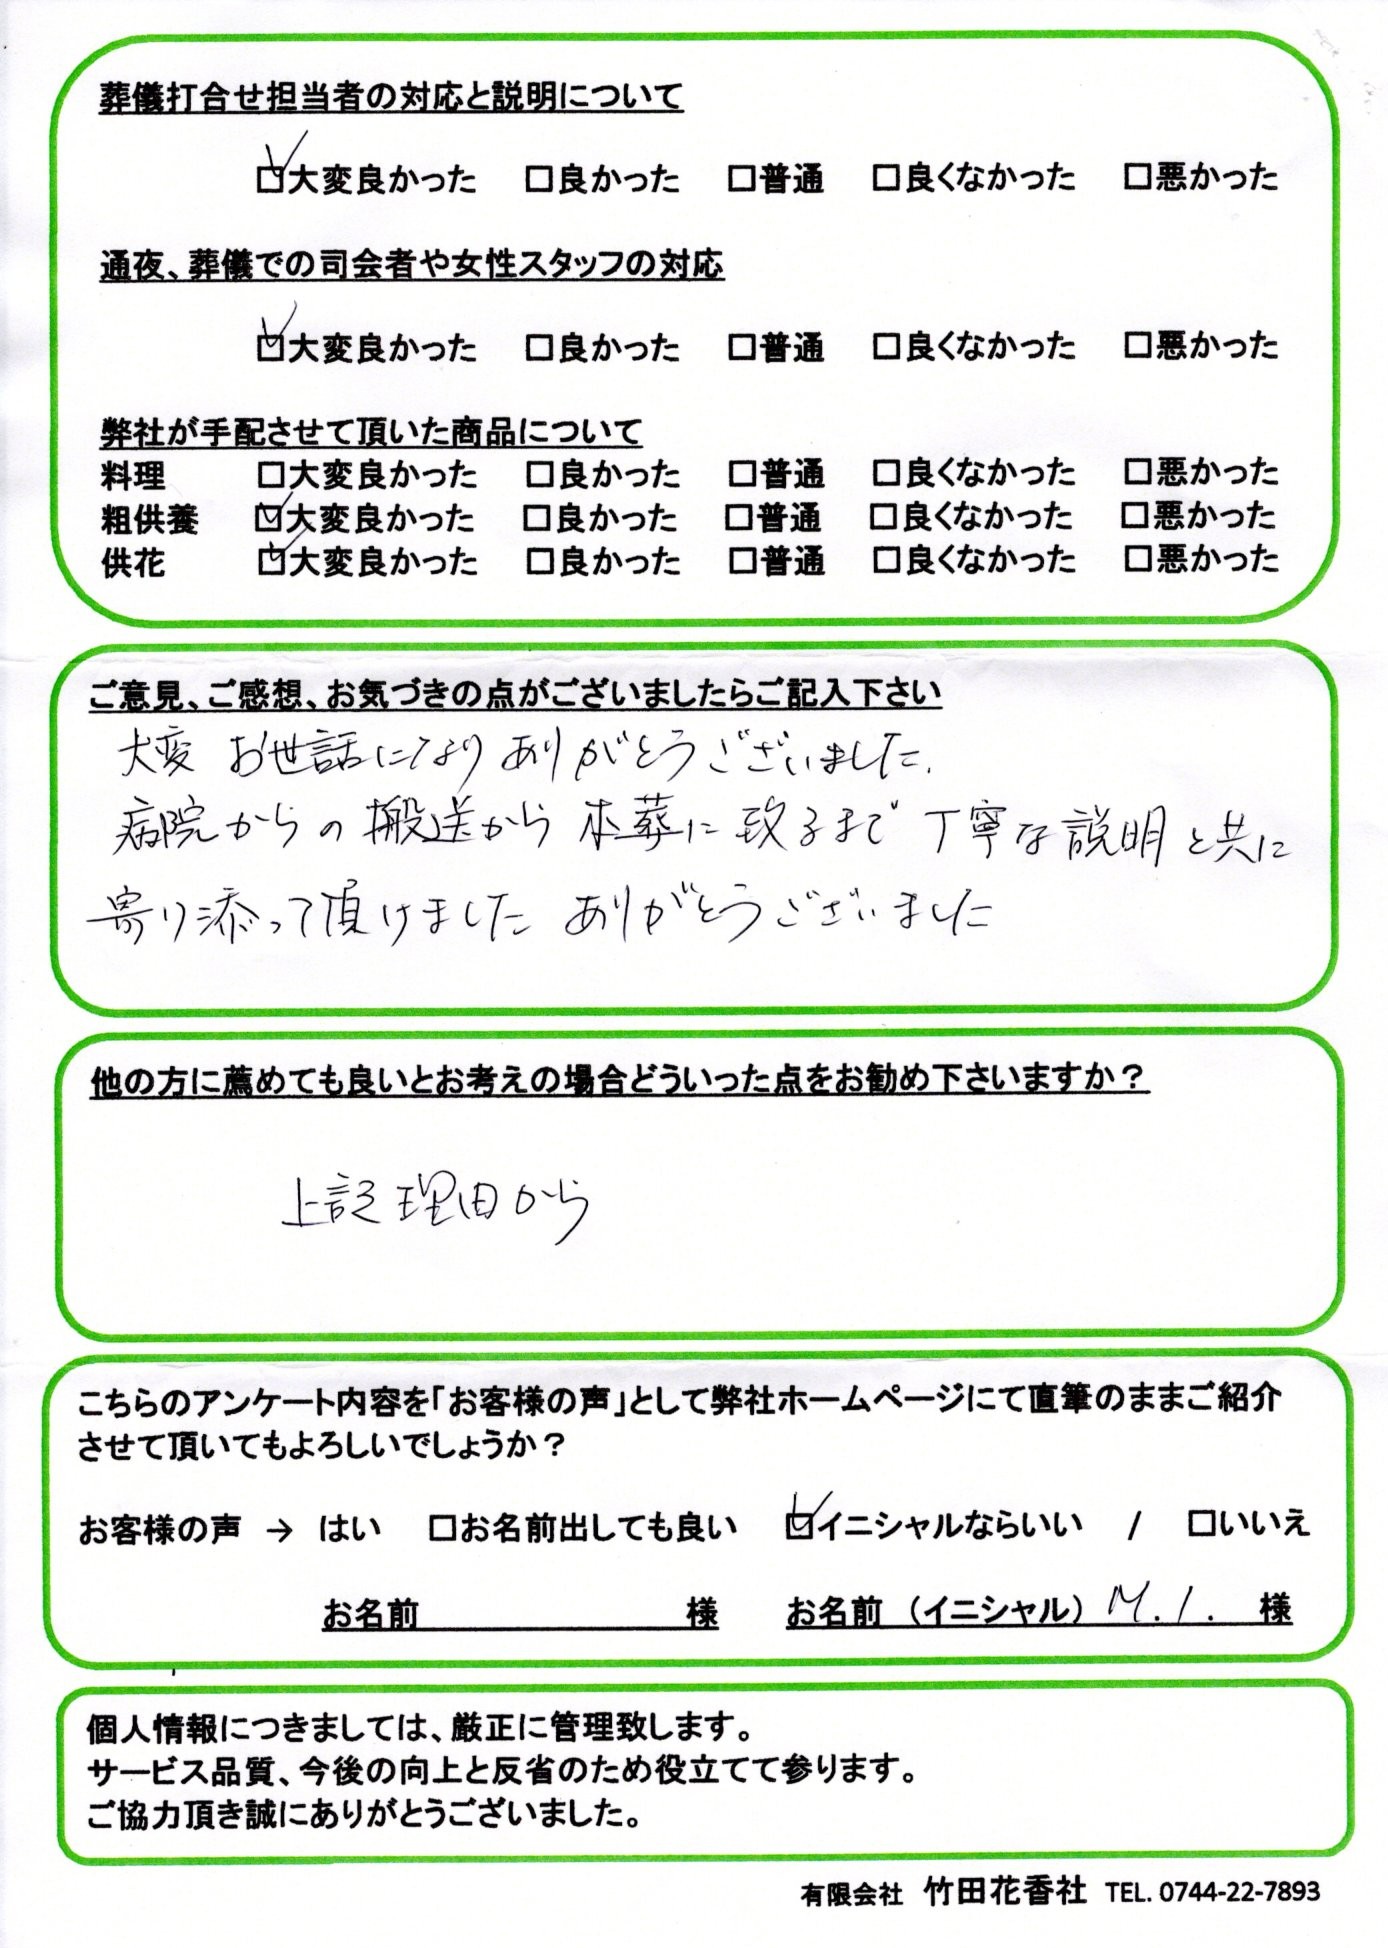 葬儀打合せ担当者の対応と説明について
☑大変良かった □良かった □普通 □良くなかった □悪かった
通夜、葬儀での司会者や女性スタッフの対応
☑大変良かった □良かった □普通 □良くなかった □悪かった
弊社が手配させて頂いた商品について
料理 □大変良かった □良かった □普通 □良くなかった □悪かった
粗供養 ☑大変良かった □良かった □普通 □良くなかった □悪かった
供花 ☑大変良かった □良かった □普通 □良くなかった □悪かった
ご意見、ご感想、お気づきの点がございましたらご記入下さい
大変 お世話になり ありがとうございました.
病院からの搬送から 本葬に致るまで 丁寧な説明と共に
寄り添って頂けました ありがとうございました
他の方に薦めても良いとお考えの場合どういった点をお勧め下さいますか？
上記理由から
こちらのアンケート内容を「お客様の声」として弊社ホームページにて直筆のままご紹介
させて頂いてもよろしいでしょうか？
お客様の声 → はい □お名前出しても良い ☑イニシャルならいい / □いいえ
お名前 様 お名前（イニシャル）M.I. 様
個人情報につきましては、厳正に管理致します。
サービス品質、今後の向上と反省のため役立てて参ります。
ご協力頂き誠にありがとうございました。
有限会社 竹田花香社 TEL. 0744-22-7893